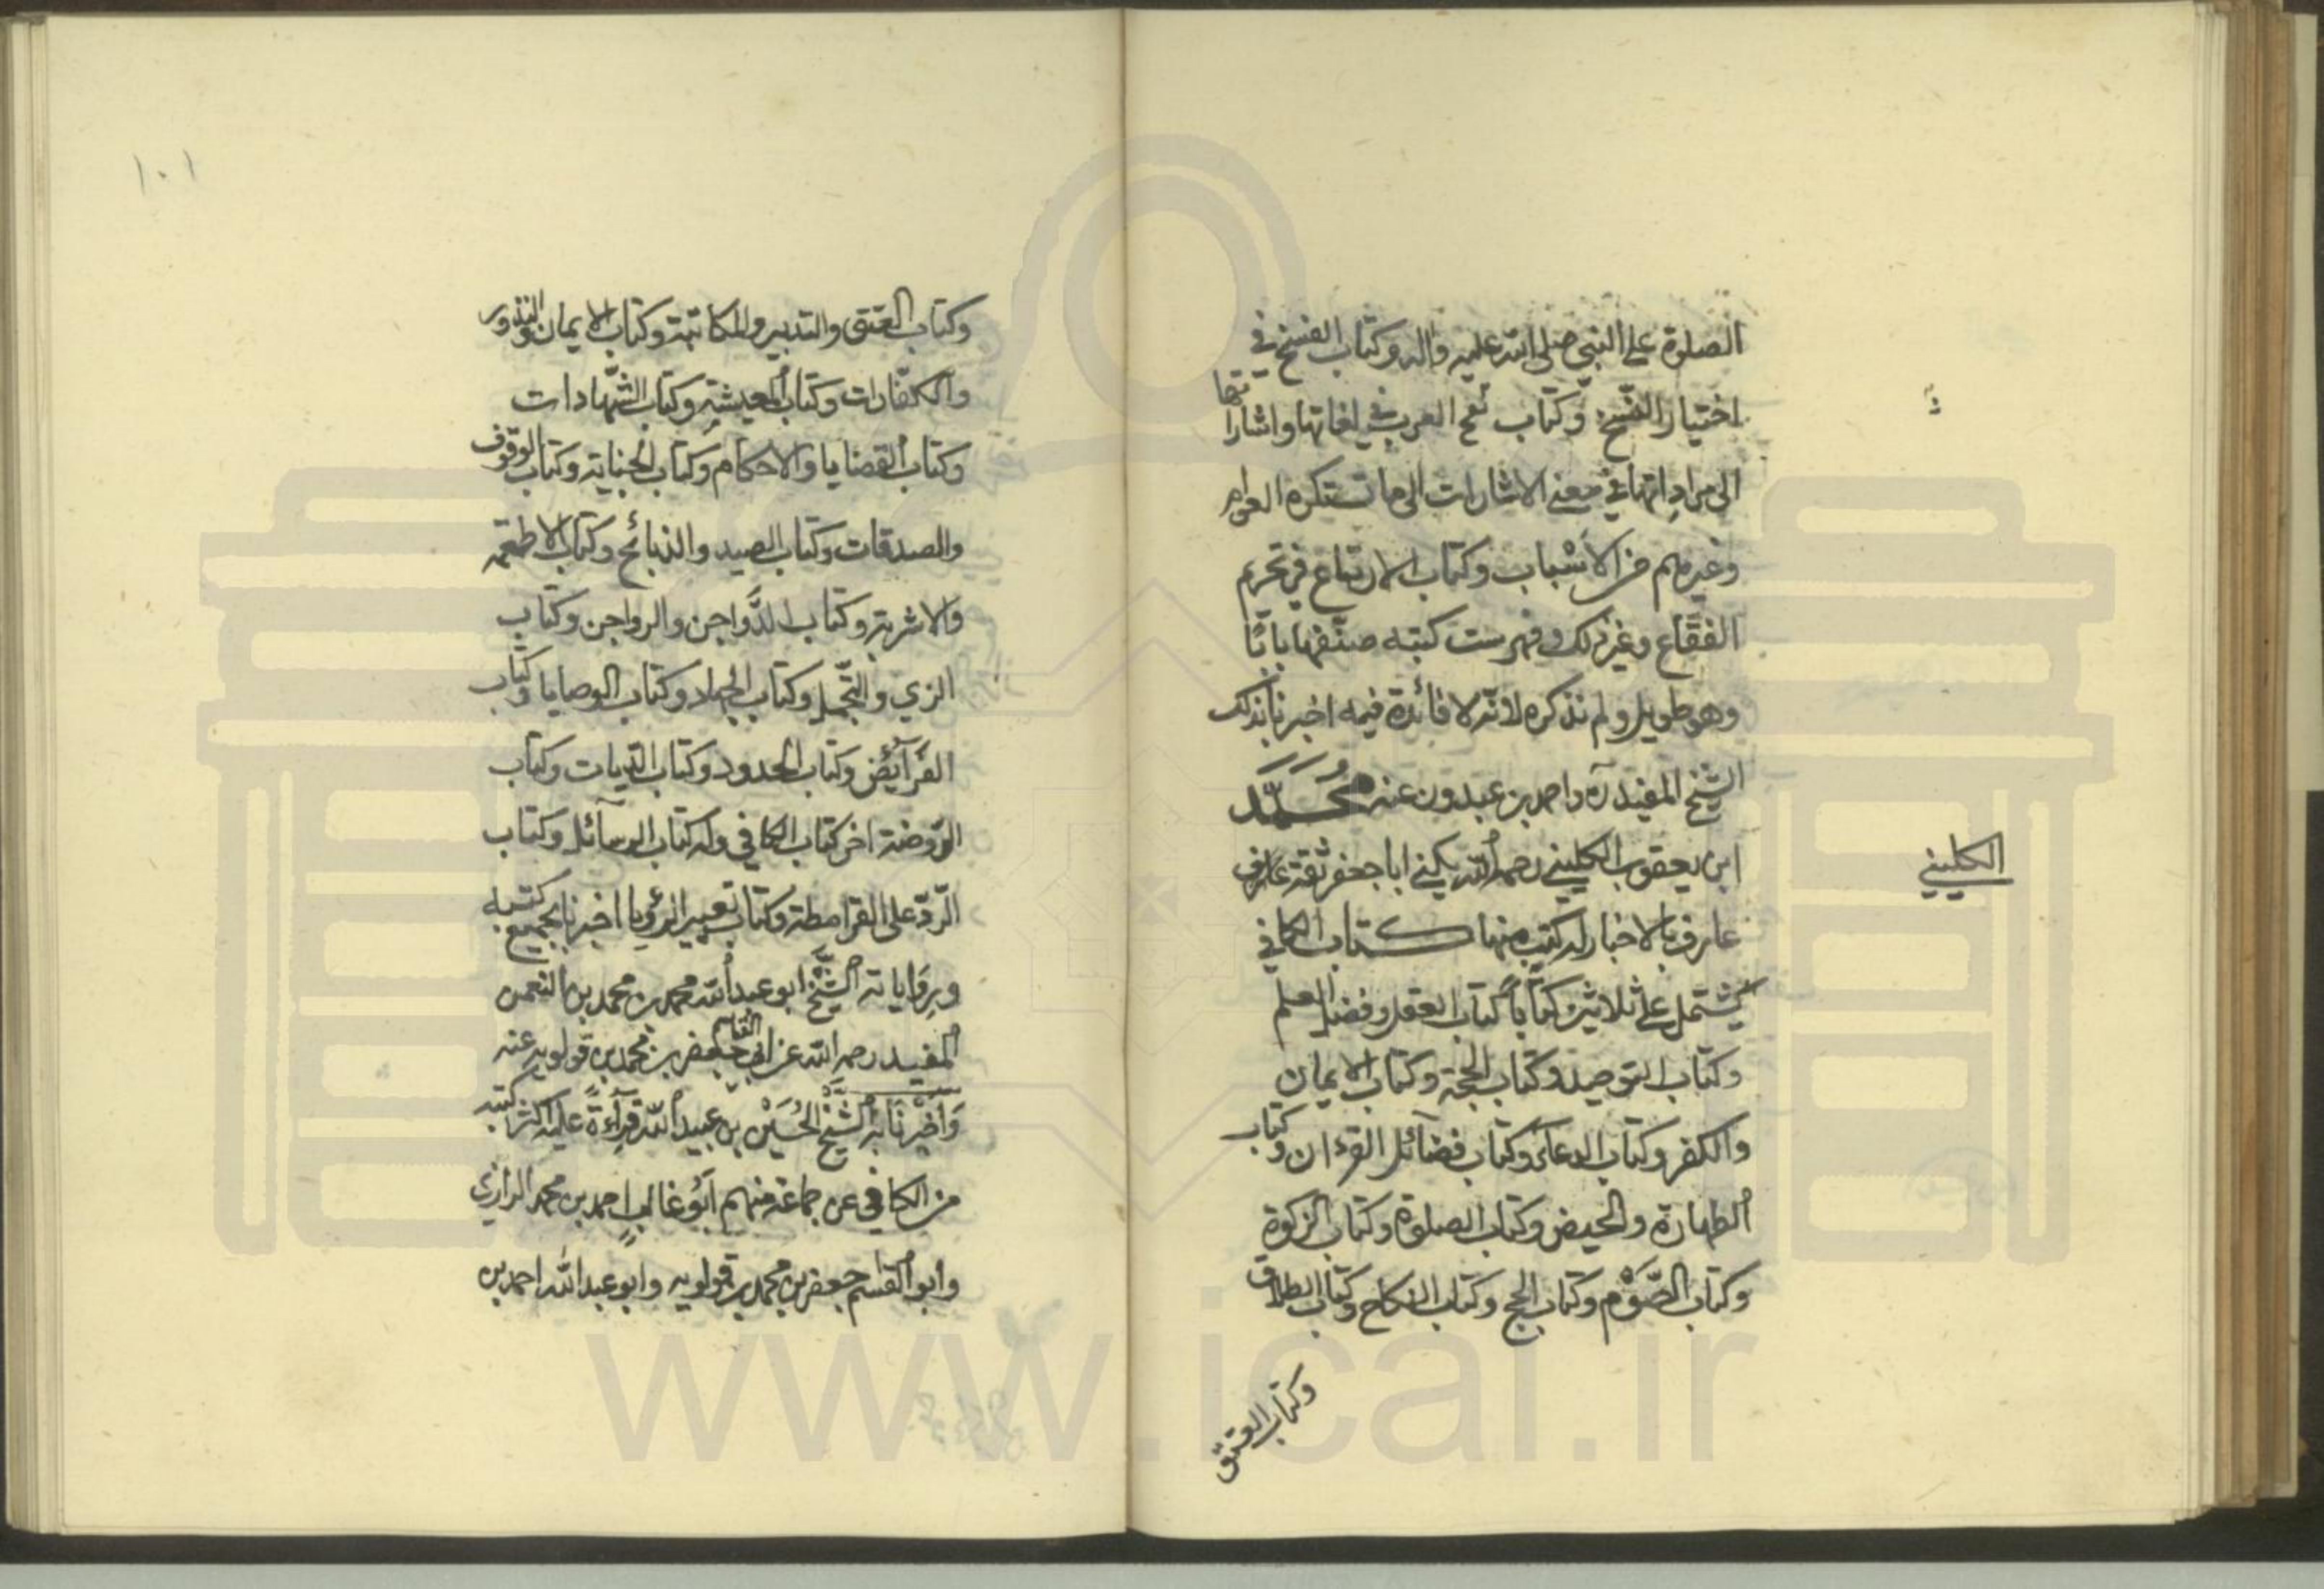 الصلوة على النبي صلى الله عليه واله وكتاب الفسخ في
اختيار الفسخ وكتاب نعج العرب في لغاتها واشاراتها
الى مراداتها في معنى الاشارات الى ما تستكره العوام
وغيرهم من الاسباب وكتاب الارتياع في تحريم
الفقاع وغير ذلك وفهرست كتبه صنّفها بابًا بابًا
وهو طويل ولم نذكره لانّه لا فائدة فيه اخبرنا بذلك
الشيخ المفيد ره واحمد بن عبدون عنه محمّد
ابن يعقوب الكليني رحمه الله يكنى ابا جعفر ثقة عارف
عارف بالاخبار له كتب منها كتاب الكافي
يشتمل على ثلاثين كتابًا كتاب العقل وفضل العلم
وكتاب التوحيد وكتاب الحجّة وكتاب الايمان
والكفر وكتاب الدعاء وكتاب فضآئل القرءان وكتاب
الطهارة والحيض وكتاب الصلوة وكتاب الزكوة
وكتاب الصَّوْم وكتاب الحج وكتاب النكاح وكتاب الطلاق
وكتاب العتق
الكليني
١٠١
وكتاب العتق والتدبير والمكاتبة وكتاب الايمان والنذور
والكفّارات وكتاب المعيشة وكتاب الشّهادات
وكتاب القضايا والاحكام وكتاب الجناية وكتاب الوقوف
والصدقات وكتاب الصيد والذبائح وكتاب الاطعمه
والاشربة وكتاب الدَّواجن والرواجن وكتاب
الزي والتّجمل وكتاب الجهاد وكتاب الوصايا وكتاب
الفَرآئِض وكتاب الحدود وكتاب الدّيات وكتاب
الرّوضة اخر كتاب الكافي وله كتاب الرسآئل وكتاب
الرّد على القرامطة وكتاب تعبير الرؤيا اخبرنا بجميع كتبه
ورِوَاياته الشّيخ ابو عبد الله محمد بن محمد بن النعمن
المفيد رحمه الله عن ابي القاسم جعفر بن محمد بن قولويه عنه
وَاَخْبَرْنَا به الشَّيْخ الحُسَيْن بن عبيد الله قرآءةً عليه اكثر كتبه
من الكافي عن جماعة منهم اَبُو غالب احمد بن محمد الرازي
وابو القاسم جعفر بن محمد بن قولويه وابو عبد الله احمد بن
www.ical.ir